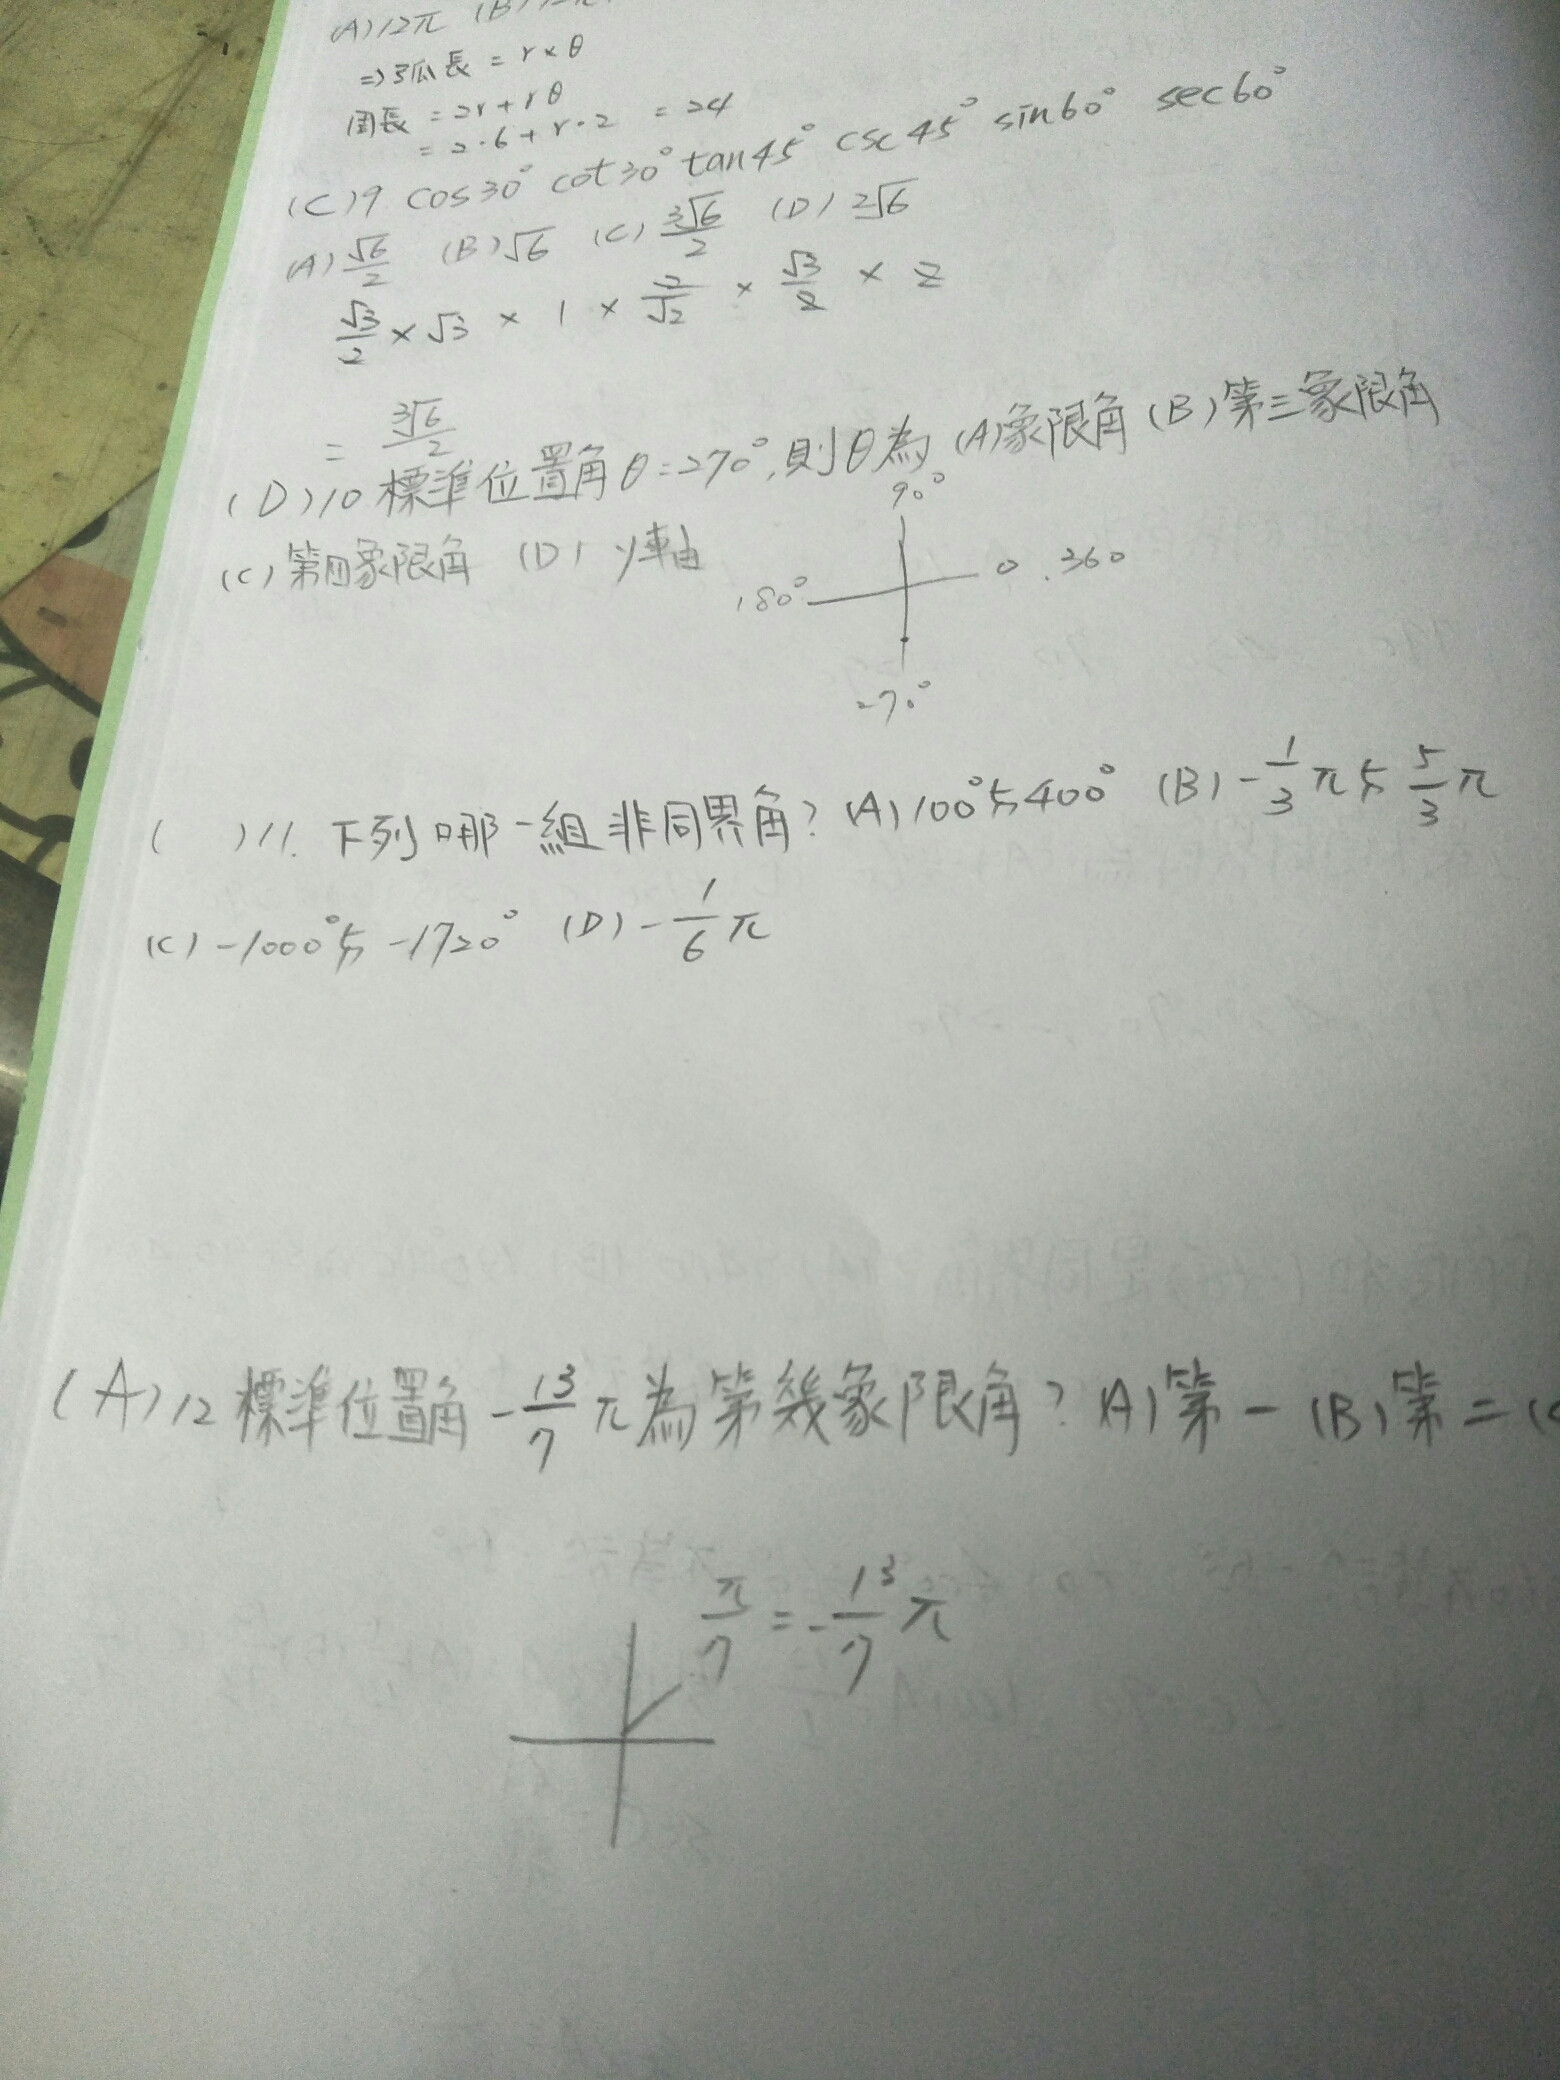 (A)12π (B)
⇒弧長 = r×θ
周長 = 2r+rθ
= 2·6+r·2 = 24
(C)9 cos30° cot30° tan45° csc45° sin60° sec60°
(A) √6/2 (B)√6 (C) 3√6/2 (D) 2√6
√3/2 × √3 × 1 × 2/√2 × √3/2 × 2
= 3√6/2
(D)10 標準位置角θ=270°,則θ為 (A)象限角 (B)第三象限角
(C)第四象限角 (D) y軸
90°
180° 0.360
270°
( )11. 下列哪一組非同界角? (A)100°与400° (B) -1/3π与5/3π
(C) -1000°与 -1720° (D) -1/6π
(A)12 標準位置角 -13/7π為第幾象限角? (A)第一 (B)第二 (C
π/7 = -13/7π